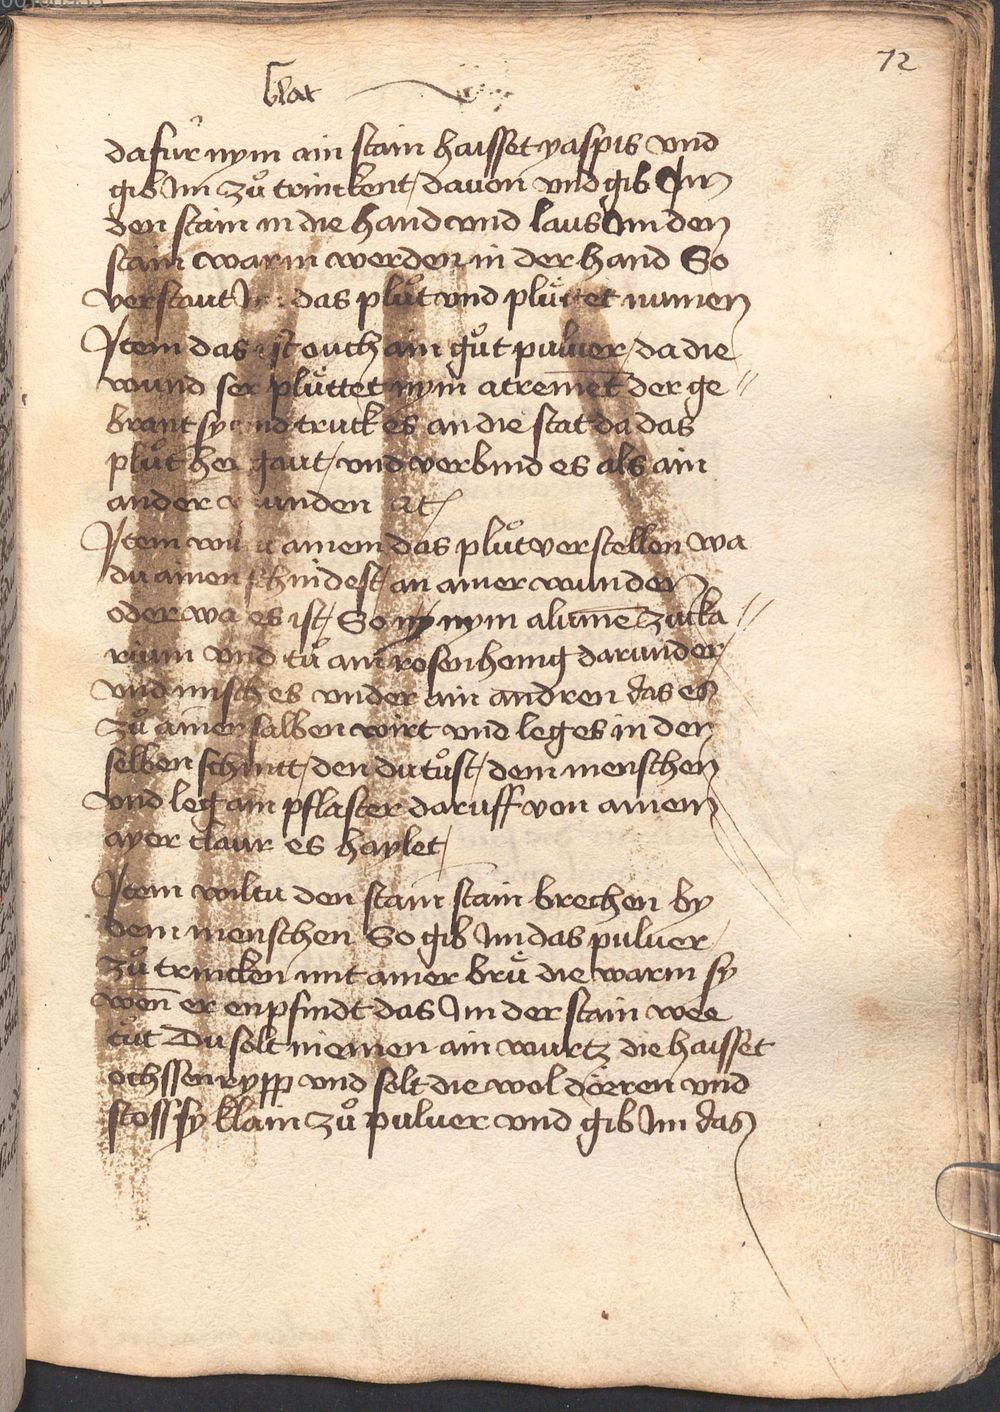 72
blat
dafür nym ain stain haisset yaspis vnd
gib Im zů trinckent / davon vnd gib Im
den stain in die hand vnd laus Im den
stain warm werden in der hand So
verstaut das plůt vnd plůttet nimen
Item das ist ouch ain gůt puluer / da die
wund ser plůttet nym atremēt der ge //
brant sy vnd truck es an die stat da das
plůt her gaut / vnd verbind es als ain
ander wunden
Item wiltu ainem das plůt verstellen wa
du ainen schnidest / an ainer wunden
oder wa es ist / So nym alumē zucka //
rium vnd tů ain rosenhenig darunder /
vnd misch es vnder ain andren das es
zů ainer salben wirt vnd leg es in den
selben schnitt / den du tůst / dem menschen
vnd leg ain pflaster daruff von ainem
ayer claur es haylet /
Item wiltu den stain stain brechen by
dem menschen So gib Im das puluer
zů trincken mit ainer brů die warm sy
wen̄ er enpfindt das Im der stain wee
tůt Du solt niemen ain wurtz die haisset
ochssenrypp vnd solt die wol döerren vnd
stoss sy klain zů puluer vnd gib Im das